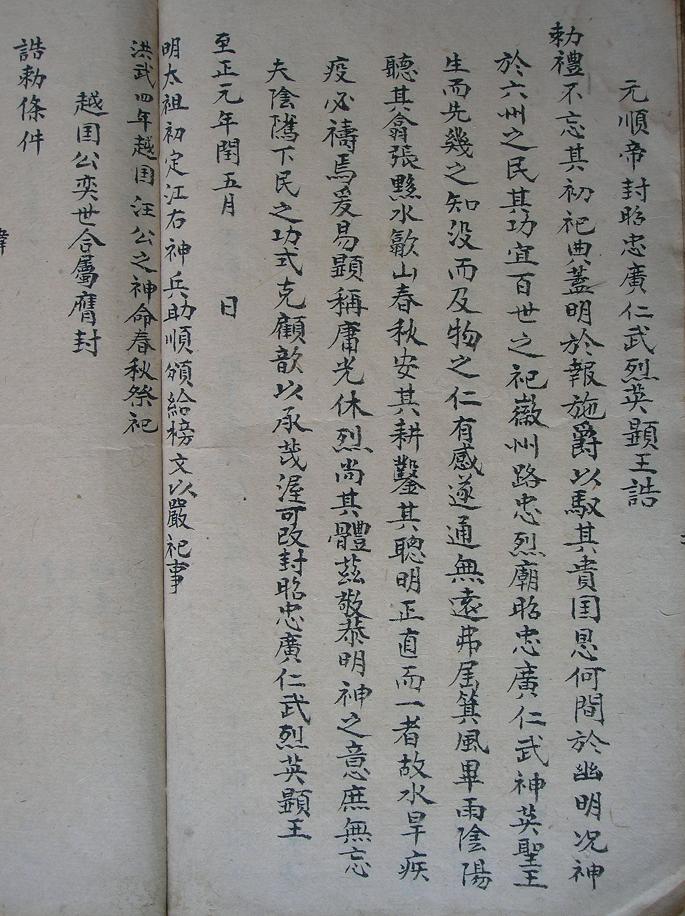 元順帝封昭忠廣仁武烈英顯王誥
勅禮不忘其初祀典蓋明於報施爵以馭其貴国恩何間於幽明况神
於六州之民其功宜百世之祀徽州路忠烈廟昭忠廣仁武神英聖王
生而先幾之知没而及物之仁有感遂通無遠弗届箕風畢雨陰陽
聽其翕張黟水歙山春秋安其耕鑿其聰明正直而一者故水旱疾
疫必禱焉爰易顯稱庸光休烈尚其體茲敬恭明神之意庶無忘
夫陰隲下民之功式克顧歆以承茂渥可改封昭忠廣仁武烈英顯王
至正元年閏五月　日
明太祖初定江右神兵助順頒給榜文以嚴祀事
洪武四年越国汪公之神命春秋祭祀
越国公奕世合屬膺封
誥勅條件